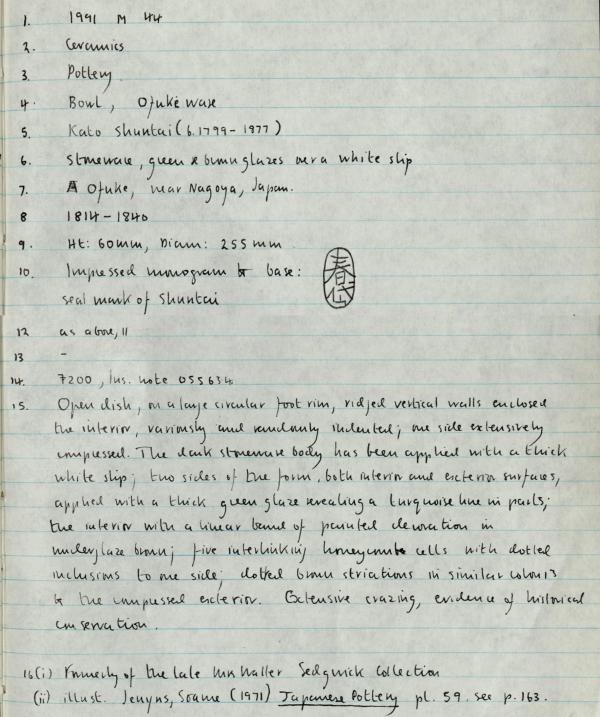 1. 1991 M 44
2. Ceramics
3. Pottery
4. Bowl, Ofuke ware
5. Kato Shuntai (b. 1799 - 1877)
6. Stoneware, green & brown glazes over a white slip
7. Ofuke, near Nagoya, Japan.
8 1814 - 1840
9. Ht: 60mm, Diam: 255 mm
10. Impressed monogram to base: 春岱
seal mark of Shuntai
12 as above, 11
13 -
14. 7200, Ins. note 055634
15. Open dish, on a large circular foot rim, ridged vertical walls enclosed
the interior, variously and randomly indented; one side extensively
compressed. The dark stoneware body has been applied with a thick
white slip; two sides of the form, both interior and exterior surfaces,
applied with a thick green glaze revealing a turquoise line in parts;
the interior with a linear band of painted decoration in
underglaze brown; five interlinking honeycomb cells with dotted
inclusions to one side; dotted brown striations in similar colours
to the compressed exterior. Extensive crazing, evidence of historical
conservation.
16 (i) Formerly of the late Mr Walter Sedgwick Collection
(ii) illust. Jenyns, Soame (1971) Japanese Pottery pl. 59. see p. 163.